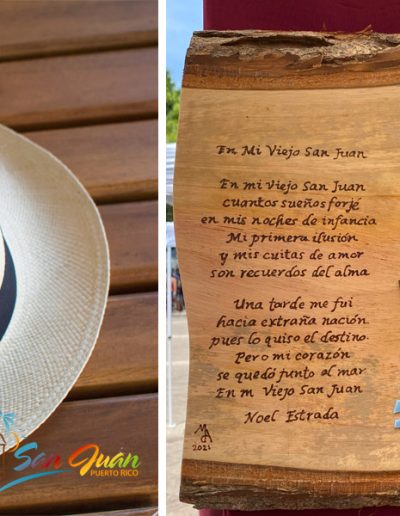 En Mi Viejo San Juan
En mi Viejo San Juan
cuantos sueños forjé
en mis noches de infancia
Mi primera ilusión
y mis cuitas de amor
son recuerdos del alma
Una tarde me fui
hacia extraña nación
pues lo quiso el destino
Pero mi corazón
se quedó junto al mar
En m Viejo San Juan
Noel Estrada
2021
San Juan
PUERTO RICO